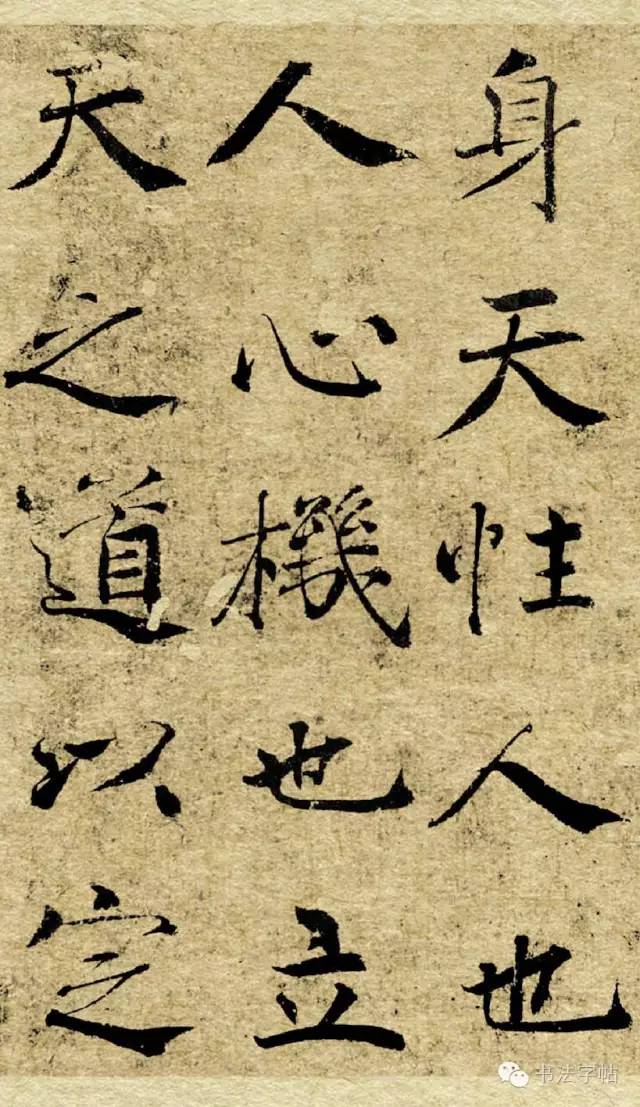 身天性人也
人心機也立
天之道以定
书法字帖